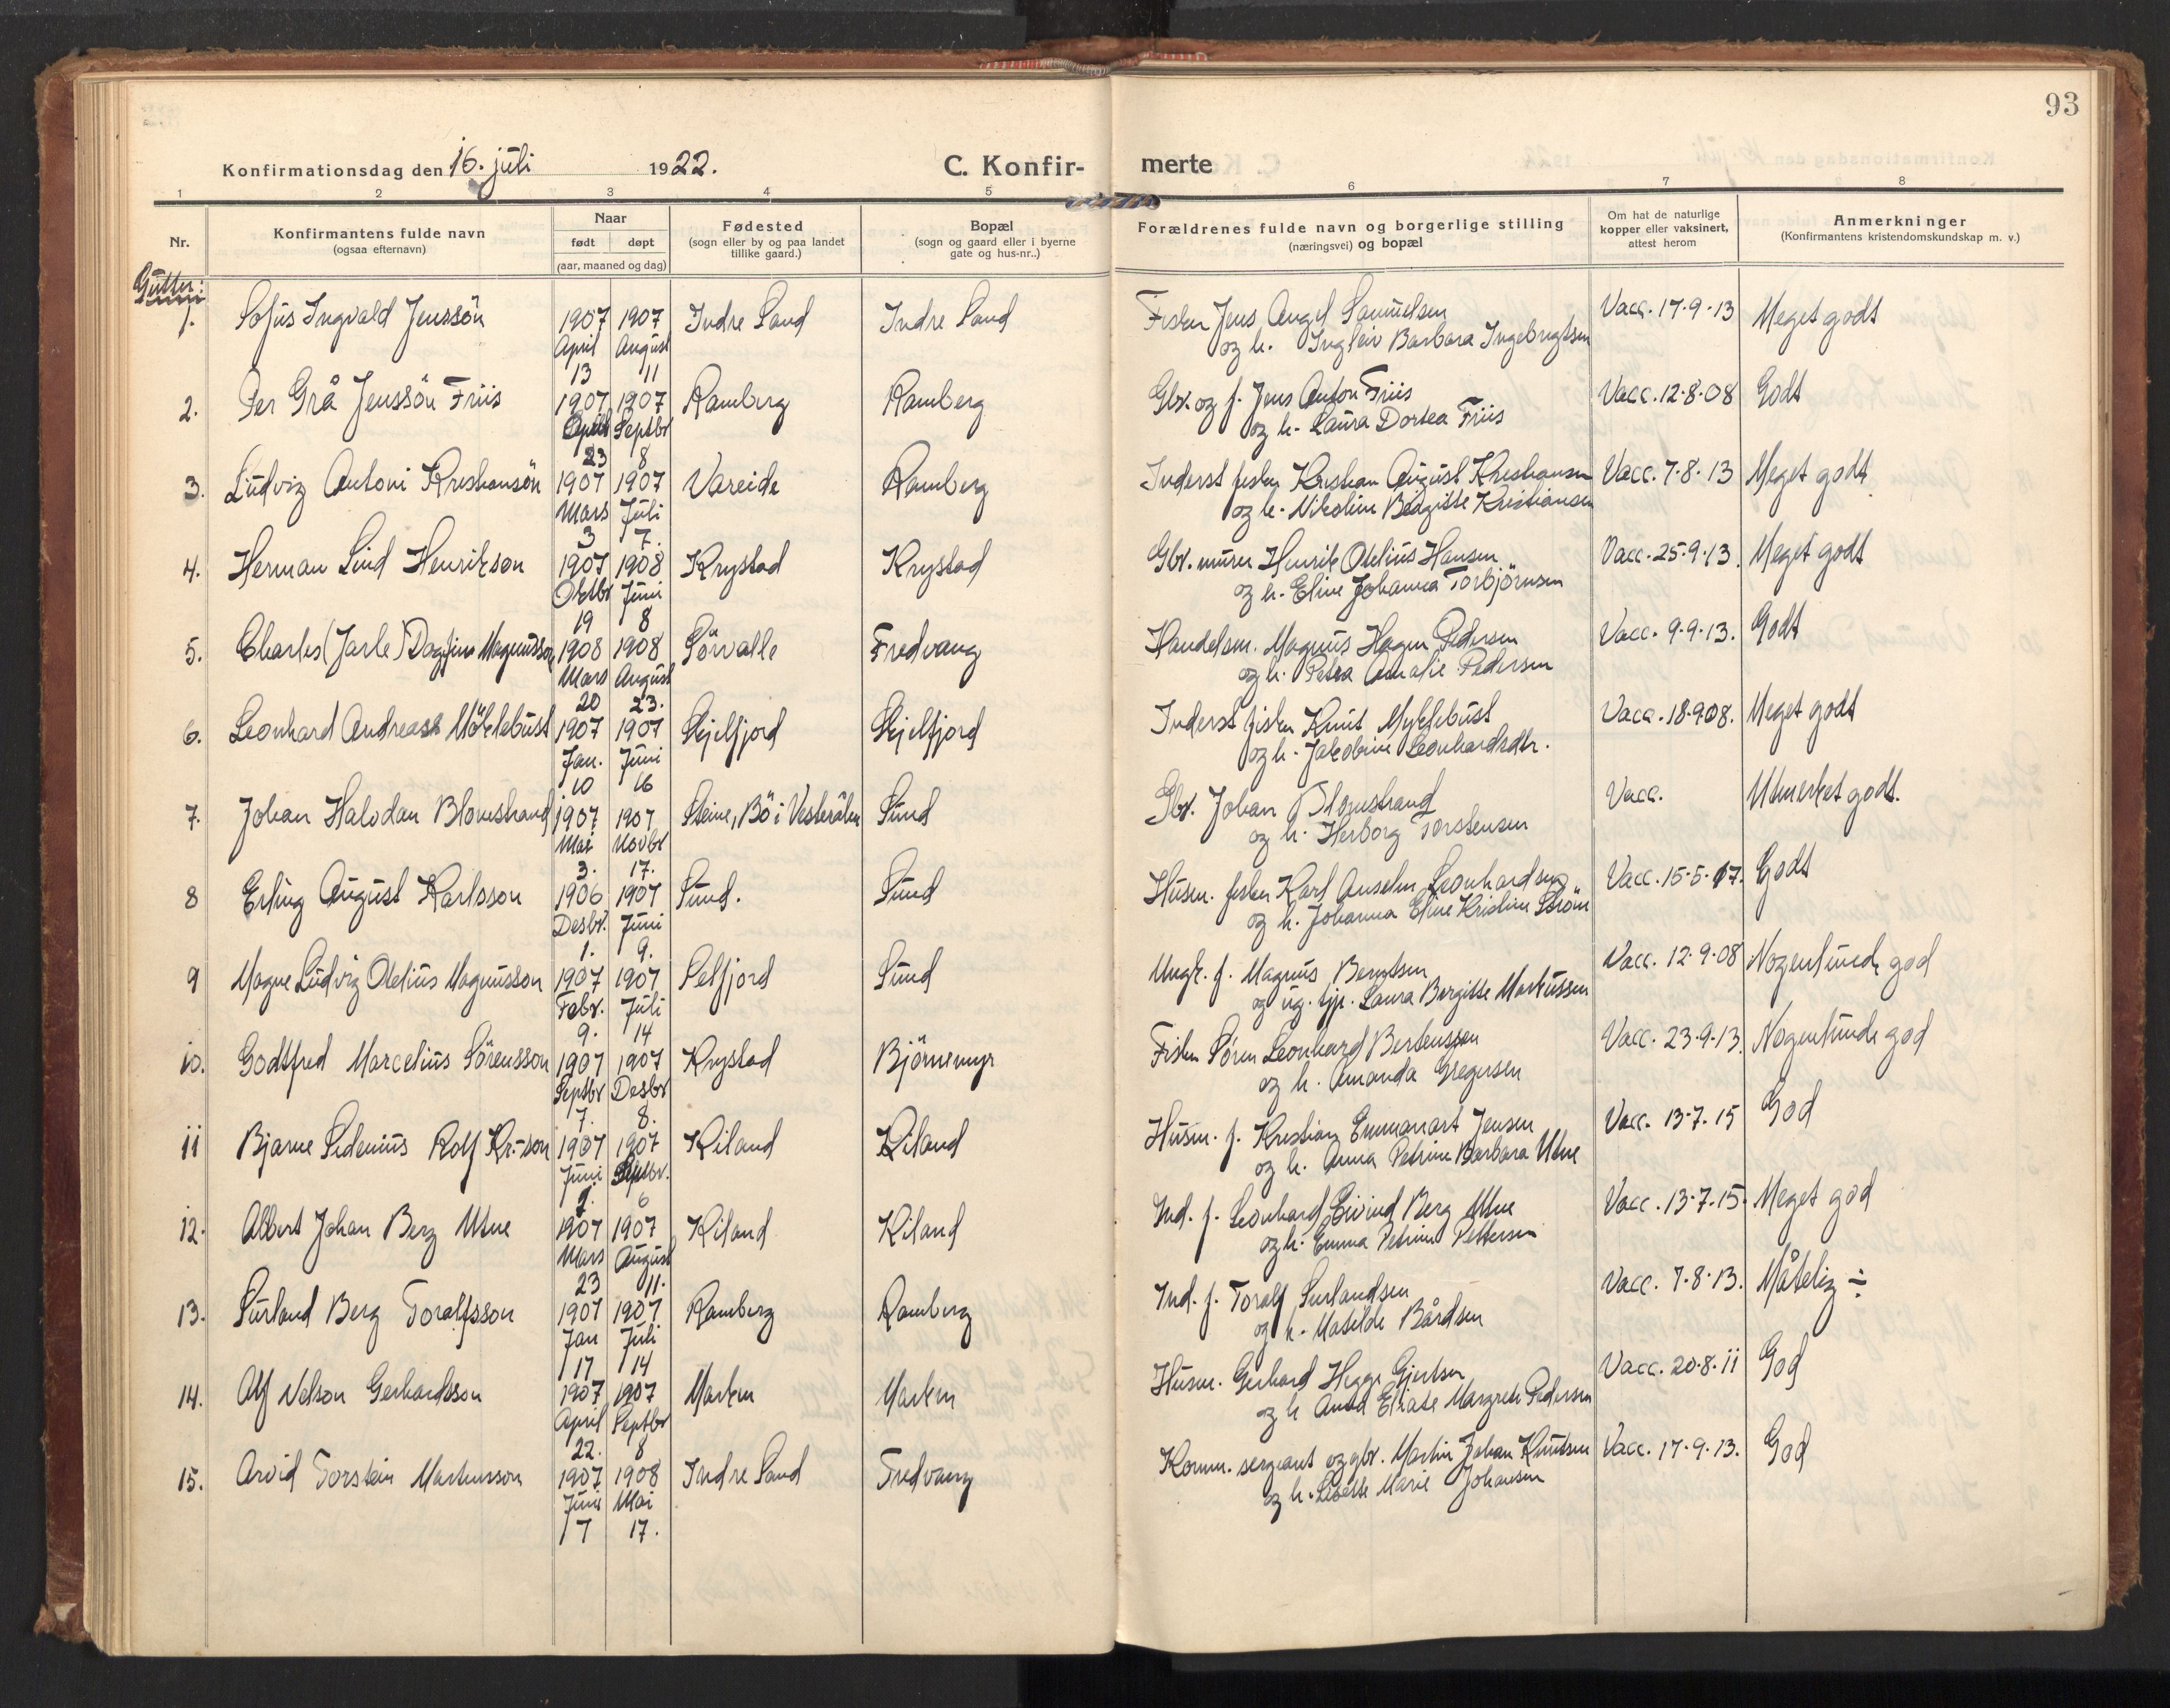 93
Konfirmationsdag den 16. juli 1922.
C. Konfirmerte
1 2 3 4 5 6 7 8
Nr.
Konfirmantens fulde navn
(ogsaa efternavn)
Naar
født døpt
(aar, maaned og dag)
Fødested
(sogn eller by og paa landet
tillike gaard.)
Bopæl
(sogn og gaard eller i byerne
gate og hus-nr..)
Forældrenes fulde navn og borgerlige stilling
(næringsvei) og bopæl
Om hat de naturlige
kopper eller vaksinert,
attest herom
Anmerkninger
(Konfirmantens kristendomskundskap m. v.)
Gutter:
1. Sofus Ingvald Jenssön 1907 1907 Indre Sand Indre Sand Fisker Jens Angel Samuelsen Vacc. 17-9-13 Meget godt
April August og h. Ingleiv Barbara Ingebrigtsen
13 11
2. Per Grå Jenssön Friis 1907 1907 Ramberg Ramberg Gbr. og f. Jens Anton Friis Vacc. 12-8-08 Godt
April Septbr og h. Laura Dortea Friis
23 8
3. Ludvig Antoni Kristiansön 1907 1907 Vareide Ramberg Inderst fisker Kristian August Kristiansen Vacc. 7-8-13 Meget godt
Mars Juli og h. Nikoline Birgitte Kristiansen
3 7.
4. Herman Lind Henrikson 1907 1908 Krystad Krystad Gbr. murer Henrik Otelius Hansen Vacc. 25-9-13. Meget godt
Oktbr Juni og h. Eline Johanna Torbjörnsen
19 8
5. Charles (Jarle) Dagfinn Magnusson 1908 1908 Sörvalle Fredvang Handelsm. Magnus Hagen Pedersen Vacc. 9-9-13. Godt
Mars August og h. Petra Amalie Pedersen
20 23.
6. Leonhard Andreas Möklebust 1907 1907 Skjelfjord Skjelfjord Inderst fisker Knut Myklebust Vacc. 18-9 08. Meget godt
Jan. Juni og h. Jakobine Leonhardsdtr.
10 16
7. Johan Halvdan Blomstrand 1907 1907 Steine, Bö i Vesterålen Sund Gbr. Johan Blomstrand Vacc. Utmerket godt.
Mai Novbr og h. Herborg Torstensen
3. 17.
8 Erling August Karlsson 1906 1907 Sund. Sund Husm. fisker Karl Anselm Leonhardsen Vacc. 15-5-17. Godt
Desbr. Juni og h. Johanna Eline Kristine Ström
1. 9.
9 Magne Ludvig Otelius Magnusson 1907 1907 Selfjord Sund Ungk. f. Magnus Berntsen Vacc. 12-9-08 Nogenlunde god
Febr. Juli og ug. tjp. Laura Bergitte Markussen
9. 14
10. Godtfred Marcelius Sörensson 1907 1907 Krystad Björnemyr Fisker Sören Leonhard Bertenssen Vacc. 23-9-13. Nogenlunde god
Septbr Desbr og h. Amanda Gregersen
7. 8.
11 Bjarne Sidenius Rolf Kr.-son 1907 1907 Kiland Kiland Husm. f. Kristian Emmanart Jensen Vacc. 13-7-15 God
Juni Septbr. og h. Anna Petrine Barbara Utne
6
12. Albert Johan Berg Utne 1907 1907 Kiland Kiland Ind. f. Leonhard Eivind Berg Utne Vacc. 13-7-15. Meget god
Mars August og h. Emma Petrine Pettersen
23 11.
13. Surland Berg Toralfsson 1907 1907 Ramberg Ramberg Ind. f. Toralf Surlandsen Vacc. 7-8-13. Måtelig ÷
Jan Juli og h. Matilde Bårdsen
17 14
14. Alf Nelson Gerhardsson 1907 1907 Marken Marken Husm. Gerhard Hegge Gjertsen Vacc. 20-8-11 God
April Septbr og h Anna Elisabe Margrete Pedersen
22. 8
15. Arvid Torstein Martinsson 1907 1908 Indre Sand Fredvang Korn. sergeant og gbr. Martin Johan Knutsen Vacc. 17-9-13. God
Juni Mai og h. Lisette Marie Johansen
17 17.